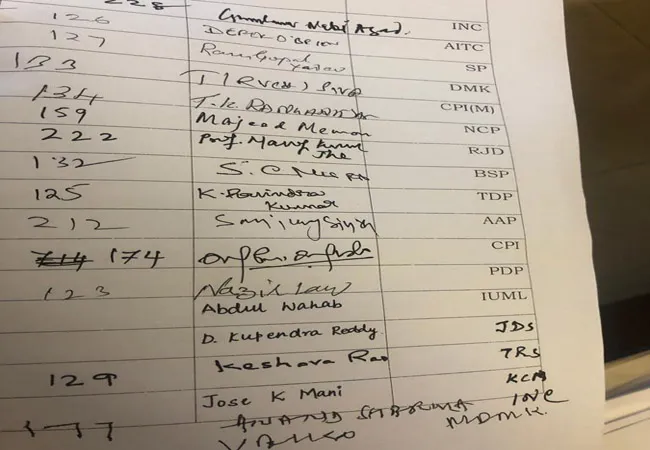 228
126 Ghulam Nabi Azad. INC
127 DEREK O'BRIEN AITC
Ram Gopal Yadav SP
133 T I R DMK
134 T.K. RANGARAJAN CPI(M)
159 Majeed Memon NCP
222 Prof. Manoj Kumar Jha RJD
132 S.C. BSP
125 K. Ravindra Kumar TDP
212 Sanjay Singh AAP
714 174 CPI
123 Nazir PDP
Abdul Wahab IUML
D. Kupendra Reddy. JDS
129 Keshava Rao TRS
Jose K Mani KCM
177 ANAND SHARMA INC
VAIKO MDMK.